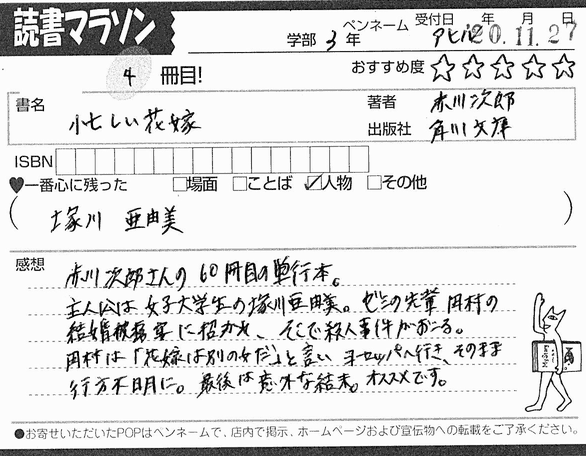 読書マラソン
4 冊目!
学部 3 年
ペンネーム アヒル
受付日 年 月 日
20.11.27
おすすめ度 ☆☆☆☆☆
書名 忙しい花嫁
著者 赤川次郎
出版社 角川文庫
ISBN
♥一番心に残った □場面 □ことば ☑人物 □その他
( 塚川 亜由美 )
感想
赤川次郎さんの60冊目の単行本。
主人公は女子大学生の塚川亜由美。ゼミの先輩 田村の
結婚披露宴に招かれ、そこで殺人事件がおこる。
田村は「花嫁は別の女だ」と言い ヨーロッパへ行き、そのまま
行方不明に。最後は意外な結末。オススメです。
●お寄せいただいたPOPはペンネームで、店内で掲示、ホームページおよび宣伝物への転載をご了承ください。